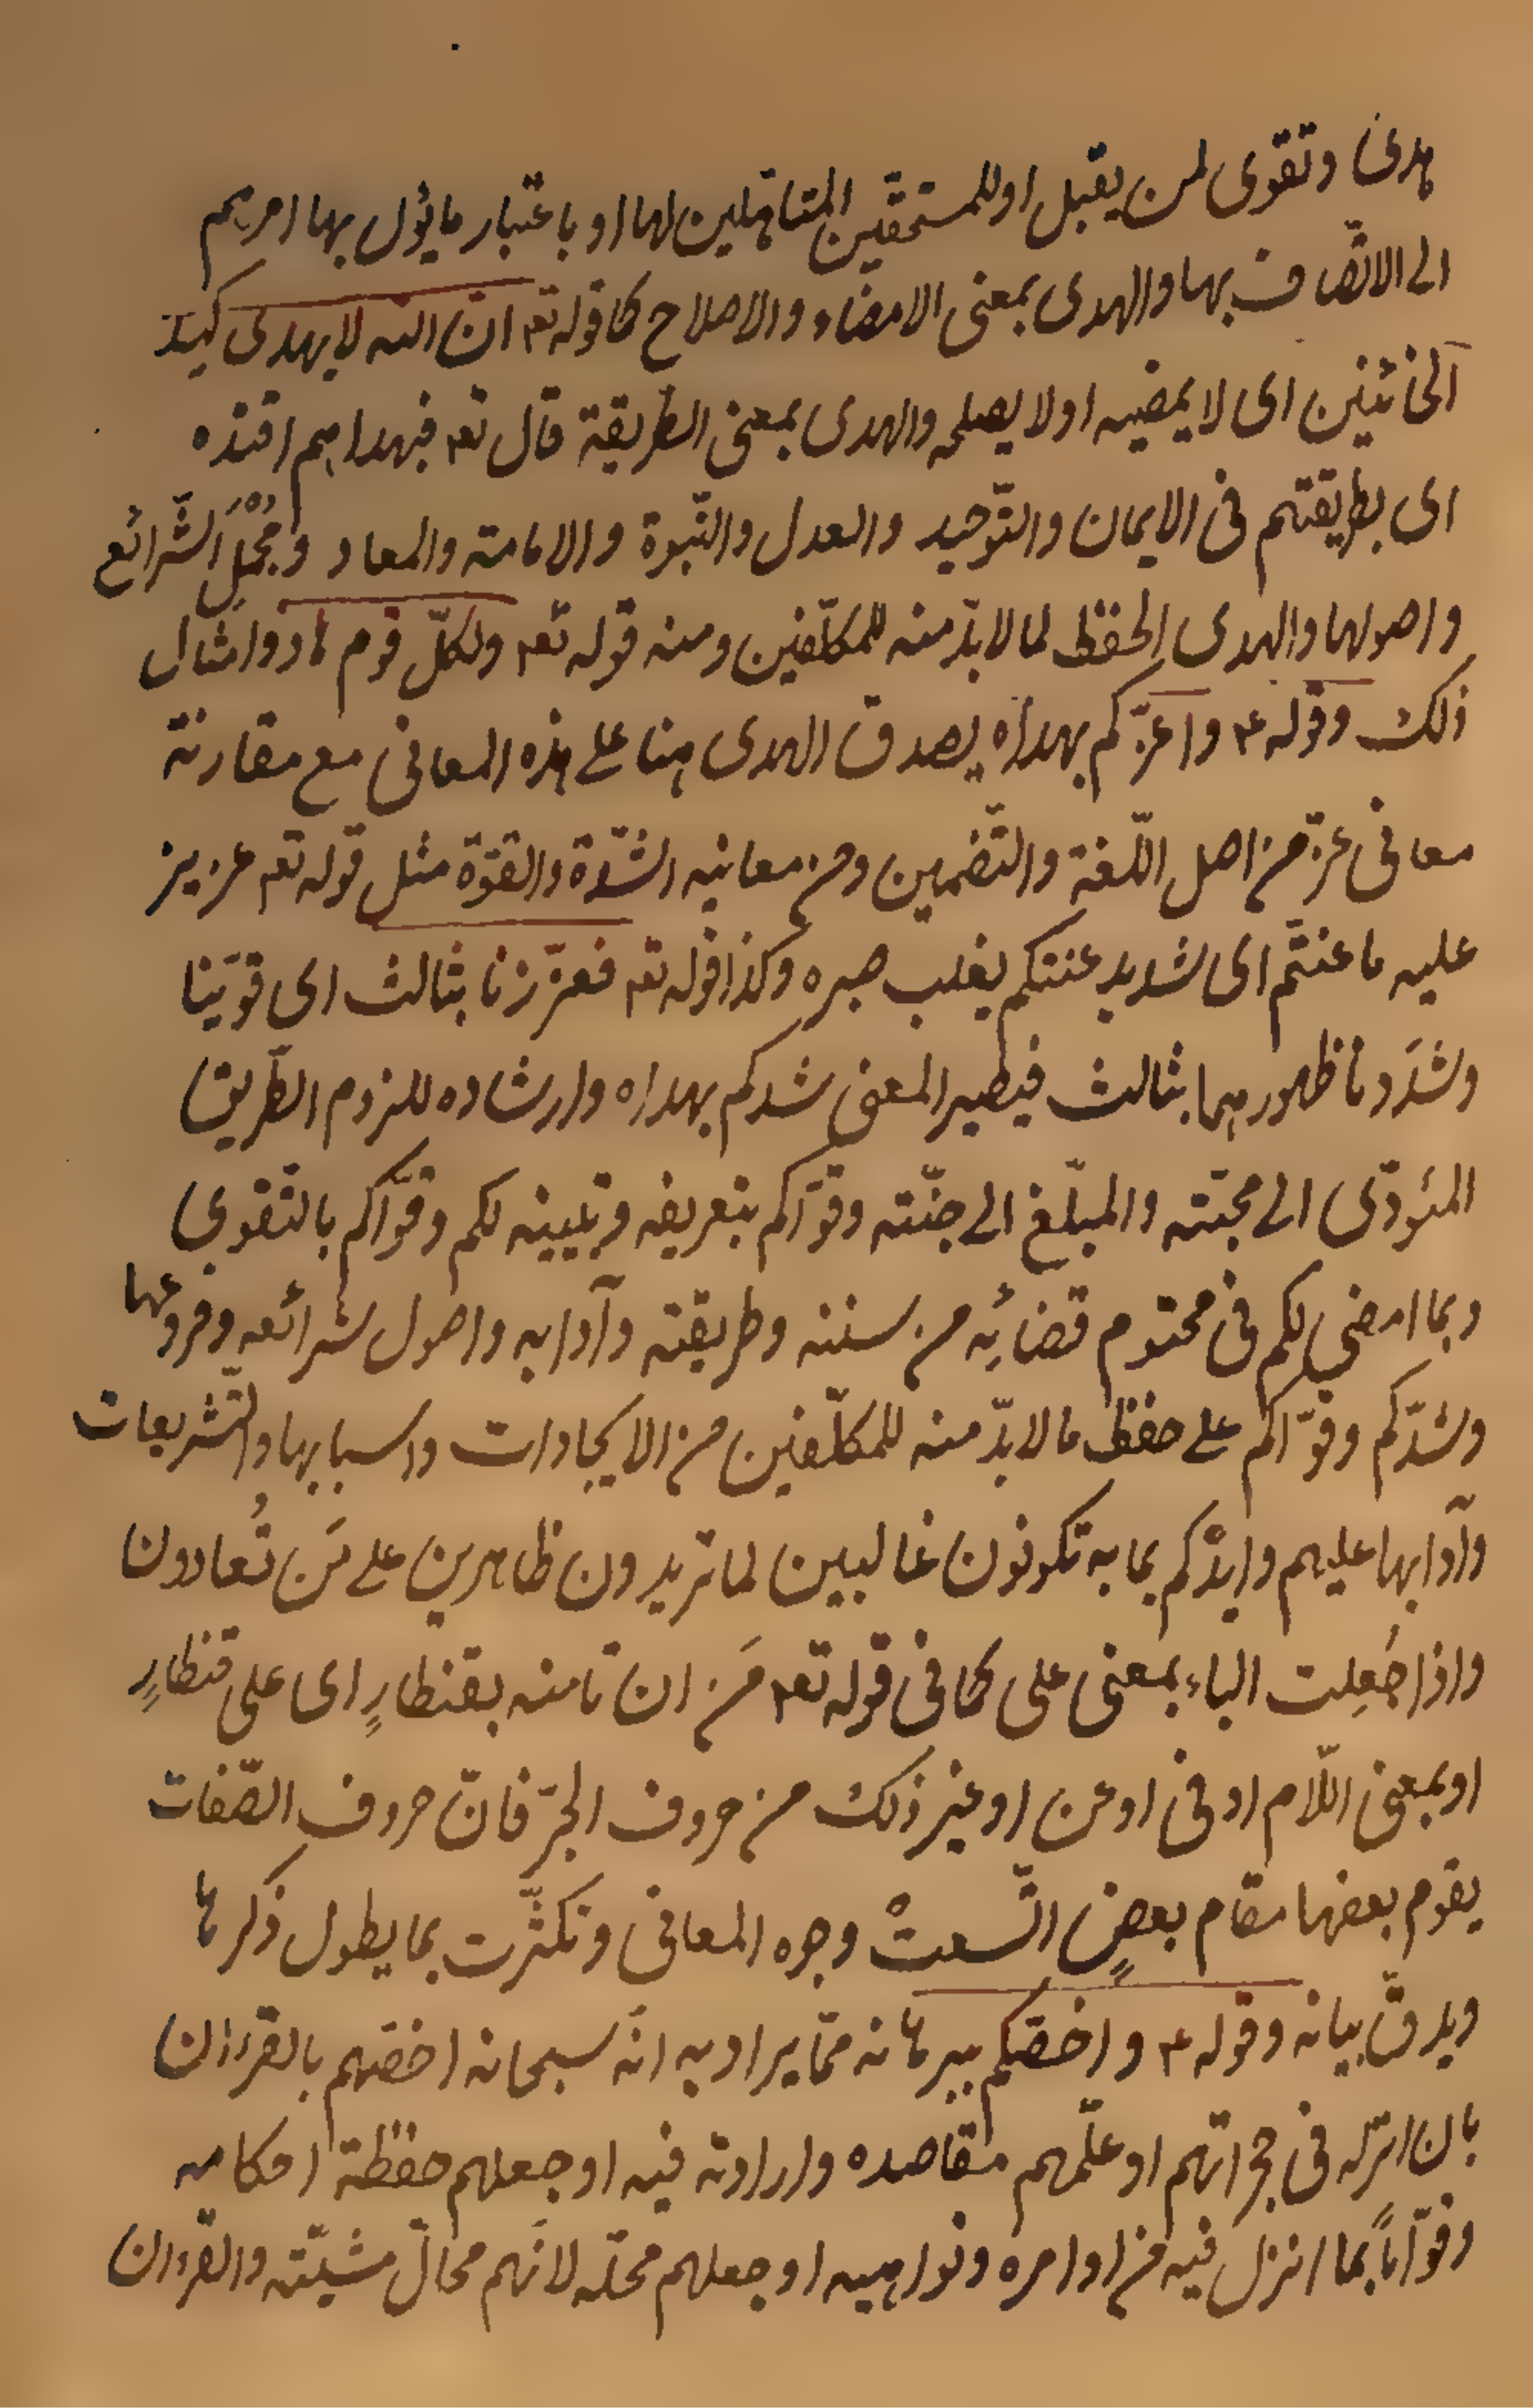 هدى وتقوى لمن يقبل او للمستحقين المتاهلين لها او باعتبار ما يؤل بها امرهم
الى الاتّصاف بها والهدى بمعنى الامضاء والاصلاح كما قوله تع۴ انّ الله لا يهدى كيد
الخائنين اى لا يمضيه او لا يصلحه والهدى بمعنى الطريقة قال تع۴ فبهداهم اقتده
اى بطريقتهم فى الايمان والتّوحيد والعدل والنّبوة والامامة والمعاد ومُجْمَلِ الشّرائع
واصولها والهدى الحفظ لما لا بدّ منه للمكلّفين ومنه قوله تع۴ ولكلّ قوم هاد وامثال
ذلك وقوله ۴ واعزّكم بهداه يصدق الهدى هنا على هذه المعانى مع مقارنة
معانى عزّ من اصل اللّغة والتّضمين ومن معانيه الشّدّة والقوّة مثل قوله تع۴ عزيز
عليه ما عنتّم اى شديد عنتكم يغلب صبره وكذا قوله تع۴ فعزّزنا بثالث اى قوّينا
وشدّدنا ظهورهما بثالث فيصير المعنى شدكم بهداه وارشاده للزوم الطّريق
المئودّى الى محبّته والمبلّغ الى جنّته وقوّاكم بتعريفه وتبيينه لكم وقوّاكم بالتّقوى
وبما امضى لكم فى محتوم قضائِه من سننه وطريقته وآدابه واصول شرائعه وفروعها
وشدّكم وقوّاكم على حفظ ما لا بدّ منه للمكلّفين من الايجادات واسبابها والتّشريعات
وآدابها عليهم وايدْكم بما به تكونون غالبين لما تريدون ظاهرين على مَن تُعادون
واذا جُعِلت الباء بمعنى على كما فى قوله تع۴ مَن ان تامنه بقنطارٍ اى على قنطارٍ
او بمعنى اللّام او فى او عن او غير ذلك من حروف الجرّ فانّ حروف الصّفات
يقوم بعضها مقام بعضٍ اتّسعتْ وجوه المعانى وتكثّرت بما يطول ذكرها
ويدقّ بيانه وقوله ۴ واخصّكم ببرهانه ممّا يراد به انّه سبحانه اخصّهم بالقرءان
بان انزله فى حجراتهم او علّمهم مقاصده وارادته فيه او جعلهم حفظة احكامه
وقوّاماً بما انزل فيه من اوامره ونواهيه او جعلهم محلّه لانّهم محالّ مشيّته والقرءان